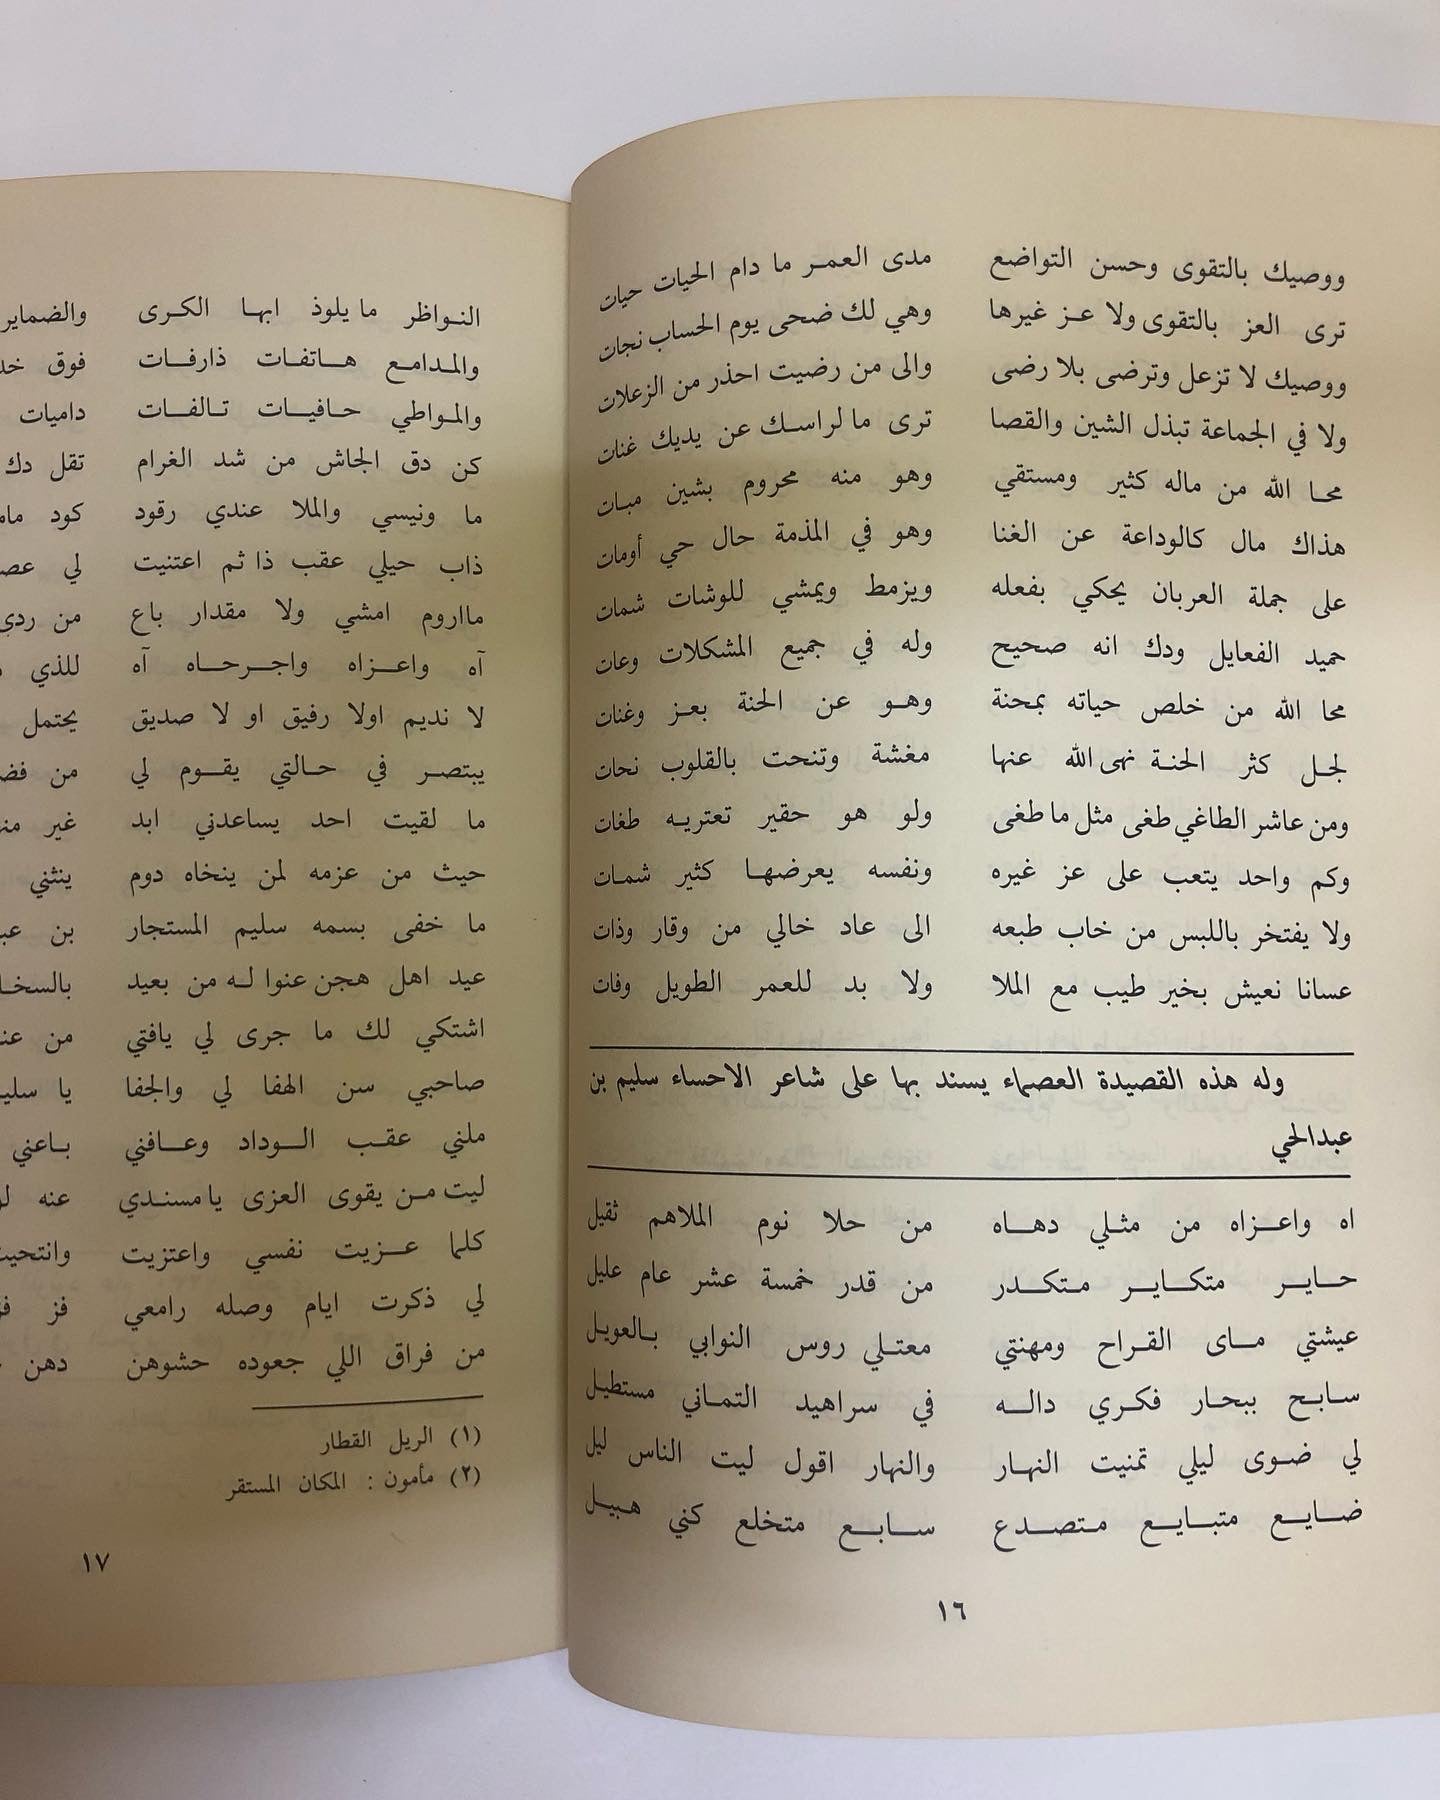 ووصيك بالتقوى وحسن التواضع مدى العمر ما دام الحيات حيات
ترى العز بالتقوى ولا عز غيرها وهي لك ضحى يوم الحساب نجات
ووصيك لا تزعل وترضى بلا رضى والى من رضيت احذر من الزعلات
ولا في الجماعة تبذل الشين والقصا ترى ما لراسك عن يديك غنات
محا الله من ماله كثير ومستقي وهو منه محروم بشين مبات
هذاك مال كالوداعة عن الغنا وهو في المذمة حال حي أومات
على جملة العربان يحكي بفعله ويزمط ويمشي للوشات شمات
حميد الفعايل ودك انه صحيح وله في جميع المشكلات وعات
محا الله من خلص حياته بمحنة وهو عن الحنة بعز وغنات
لجل كثر الحنة نهى الله عنها مغشة وتنحت بالقلوب نحات
ومن عاشر الطاغي طغى مثل ما طغى ولو هو حقير تعتريه طغات
وكم واحد يتعب على عز غيره ونفسه يعرضها كثير شمات
ولا يفتخر باللبس من خاب طبعه الى عاد خالي من وقار وذات
عسانا نعيش بخير طيب مع الملا ولا بد للعمر الطويل وفات
وله هذه القصيدة العصماء يسند بها على شاعر الاحساء سليم بن
عبدالحي
اه واعزاه من مثلي دهاه من حلا نوم الملاهم ثقيل
حاير متكاير متكدر من قدر خمسة عشر عام عليل
عيشتي ماى القراح ومهنتي معتلي روس النوابي بالعويل
سابح ببحار فكري داله في سراهيد التماني مستطيل
لي ضوى ليلي تمنيت النهار والنهار اقول ليت الناس ليل
ضايع متبايع متصدع سابع متخلع كني هبيل
١٦
النواظر مايلوذ ابها الكرى والضماير
والمدامع هاتفات ذارفات فوق
والمواطي حافيات تالفات داميات
كن دق الجاش من شد الغرام تقل دك
ما ونيسي والملا عندي رقود كود
ذاب حيلي عقب ذا ثم اعتنيت لي
مااروم امشي ولا مقدار باع من ردى
آه واعزاه واجرحاه آه للذي
لا نديم اولا رفيق او لا صديق يحتمل
يبتصر في حالتي يقوم لي من
ما لقيت احد يساعدني ابد غير
حيث من عزمه لمن ينخاه دوم ينثني
ما خفى بسمه سليم المستجار بن
عيد اهل هجن عنوا له من بعيد
اشتكي لك ما جرى لي يافتي من
صاحبي سن الهفا لي والجفا يا
ملني عقب الوداد وعافني باعني
ليت من يقوى العزى يامسندي عنه
كلما عزيت نفسي واعتزيت
لي ذكرت ايام وصله رامعي فز
من فراق اللي جعوده حشوهن دهن
(١) الريل القطار
(٢) مأمون : المكان المستقر
١٧